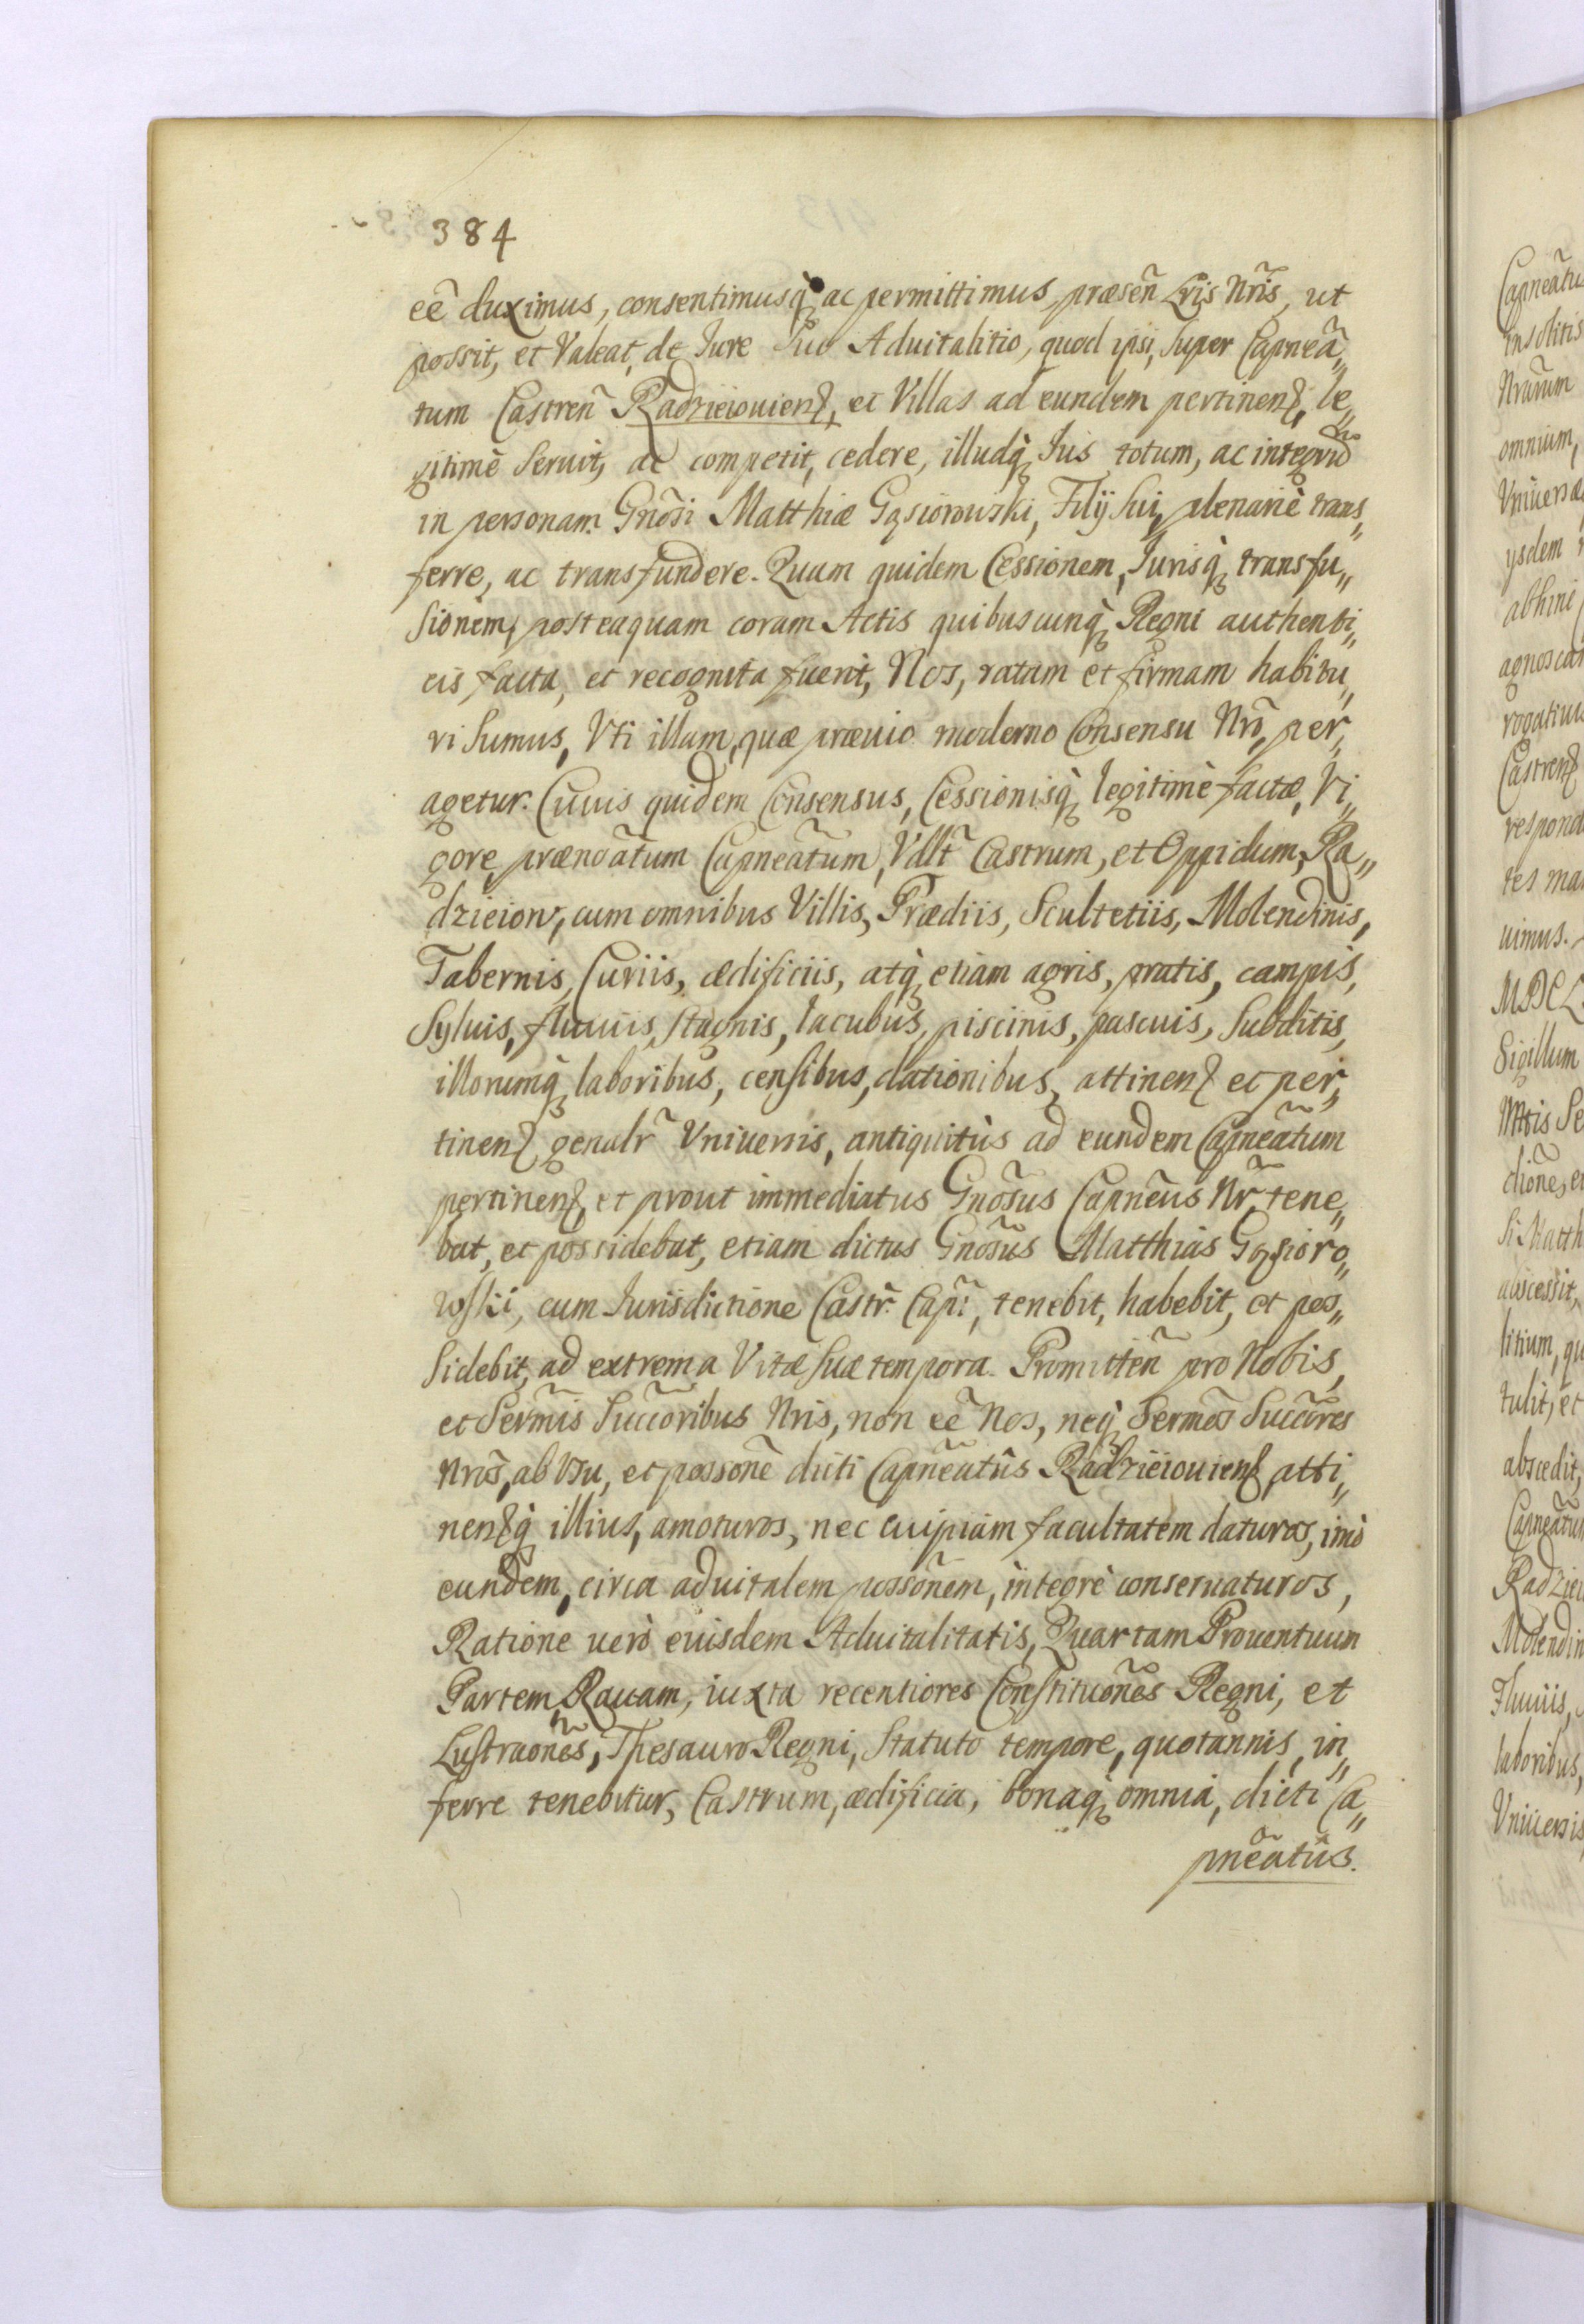 384
eẽ duximus, consentimusq̀ ac permittimus, præseñ Lris Nr̃is, ut
possit, et Valeat, de Iure Suo Aduitalitio, quod ipsi, super Capneã„
tum Castreñ Radzieiouienß, et Villas ad eundem pertinenß, le„
gitimè seruit, ac competit, cedere, illudq̀ Ius totum, ac integrũ
in personam Gnõsi Matthiæ Gąsiorowski, Filij sui, plenariè trans„
ferre, ac transfundere. Quam quidem Cessionem, Iurisq̀ transfu„
sionem, posteaquam coram Actis quibuscunq̀ Regni authenti„
cis facta, et recognita fuerit, Nos, ratam et firmam habitu„
ri sumus, Vti illam, quæ præuio moderno Consensu Nrõ, per„
agetur. Cuius quidem Consensus, Cessionisq̀ legitimè factæ, Vi„
gore, prænoãtum Capneãtum, Vdlt̃ Castrum, et Oppidum, Ra„
dzieiow, cum omnibus Villis, Prædiis, Scultetiis, Molendinis,
Tabernis, Curiis, ædificiis, atq̀ etiam agris, pratis, campis,
Syluis, fluuiis, stagnis, lacubus, piscinis, pascuis, subditis,
illorumq̀ laboribus, censibus, dationibus, attinenß et per„
tinenß genalr̃ Vniuersis, antiquitùs ad eundem Capneãtum
pertinenß, et prout immediatus Gnõsus Capnẽus Nr̃ tene„
bat, et possidebat, etiam dictus Gnõsus Matthias Gąsioro„
wski, cum Iurisdictione Castr̃. Cap̃:, tenebit, habebit, et pos„
sidebit, ad extrema Vitæ suæ tempora. Promitteñ pro Nobis,
et Serm̃is Succ̃oribus Nris, non eẽ Nos, neq̀ Serm̃os Succ̃ores
Nrõs, ab Vsu, et possonẽ dicti Capnẽatûs Radzieiouienß, atti„
nenßq̀ illius, amoturos, nec cuipiam facultatem daturos, imò
eundem, circa aduitalem possonẽm, integrè conseruaturos,
Ratione uerò euisdem Aduitalitatis, Quartam Prouentuum
Partem, Rauam, iuxta recentiores Constituonẽs Regni, et
Lustraonẽs, Thesauro Regni, Statuto tempore, quotannis, in„
ferre tenebitur, Castrum, ædificia, bonaq̀ omnia, dicti Ca„
pnẽatûs.